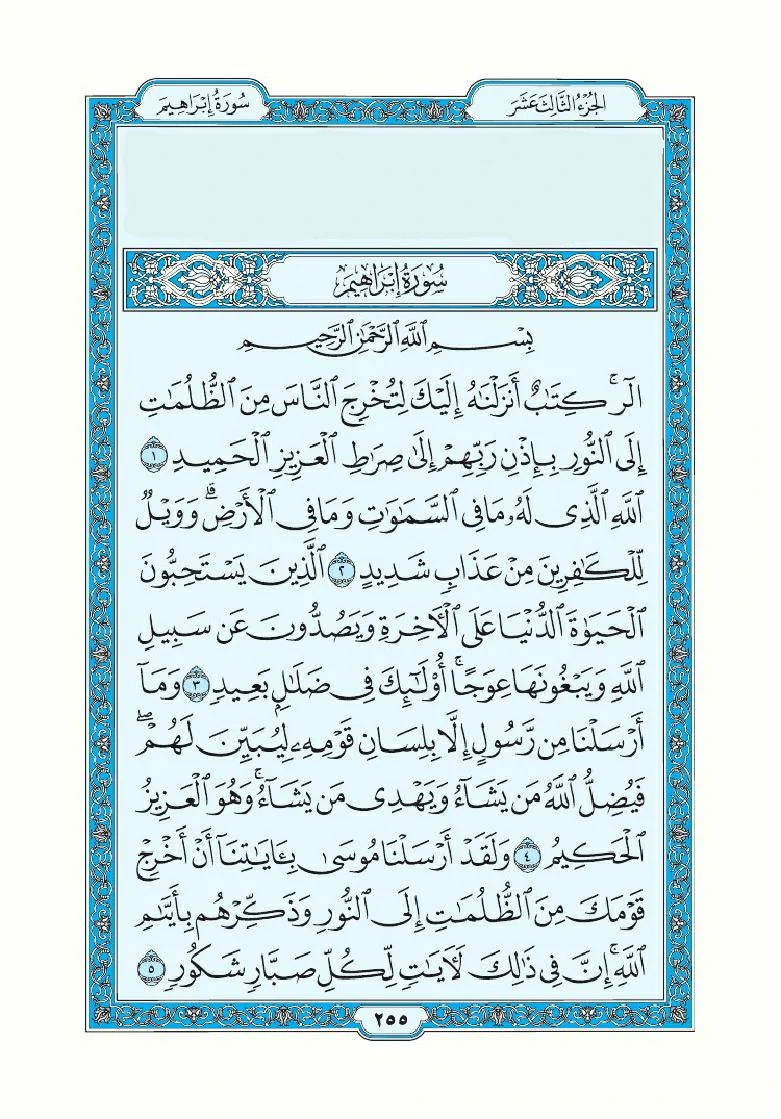 الجُزْءُ الثَّالِثَ عَشَرَ
سُورَةُ إِبْرَاهِيمَ
سُورَةُ إِبْرَاهِيمَ
بِسْمِ ٱللَّهِ ٱلرَّحْمَٰنِ ٱلرَّحِيمِ
الٓرۚ كِتَٰبٌ أَنزَلْنَٰهُ إِلَيْكَ لِتُخْرِجَ ٱلنَّاسَ مِنَ ٱلظُّلُمَٰتِ
إِلَى ٱلنُّورِ بِإِذْنِ رَبِّهِمْ إِلَىٰ صِرَٰطِ ٱلْعَزِيزِ ٱلْحَمِيدِ ١
ٱللَّهِ ٱلَّذِى لَهُۥ مَا فِى ٱلسَّمَٰوَٰتِ وَمَا فِى ٱلْأَرْضِۗ وَوَيْلٌ
لِّلْكَٰفِرِينَ مِنْ عَذَابٍ شَدِيدٍ ٢ ٱلَّذِينَ يَسْتَحِبُّونَ
ٱلْحَيَوٰةَ ٱلدُّنْيَا عَلَى ٱلْأَخِرَةِ وَيَصُدُّونَ عَن سَبِيلِ
ٱللَّهِ وَيَبْغُونَهَا عِوَجًاۚ أُو۟لَٰٓئِكَ فِى ضَلَٰلٍۭ بَعِيدٍ ٣ وَمَآ
أَرْسَلْنَا مِن رَّسُولٍ إِلَّا بِلِسَانِ قَوْمِهِۦ لِيُبَيِّنَ لَهُمْۖ
فَيُضِلُّ ٱللَّهُ مَن يَشَآءُ وَيَهْدِى مَن يَشَآءُۚ وَهُوَ ٱلْعَزِيزُ
ٱلْحَكِيمُ ٤ وَلَقَدْ أَرْسَلْنَا مُوسَىٰ بِـَٔايَٰتِنَآ أَنْ أَخْرِجْ
قَوْمَكَ مِنَ ٱلظُّلُمَٰتِ إِلَى ٱلنُّورِ وَذَكِّرْهُم بِأَيَّىٰمِ
ٱللَّهِۚ إِنَّ فِى ذَٰلِكَ لَءَايَٰتٍ لِّكُلِّ صَبَّارٍ شَكُورٍ ٥
٢٥٥